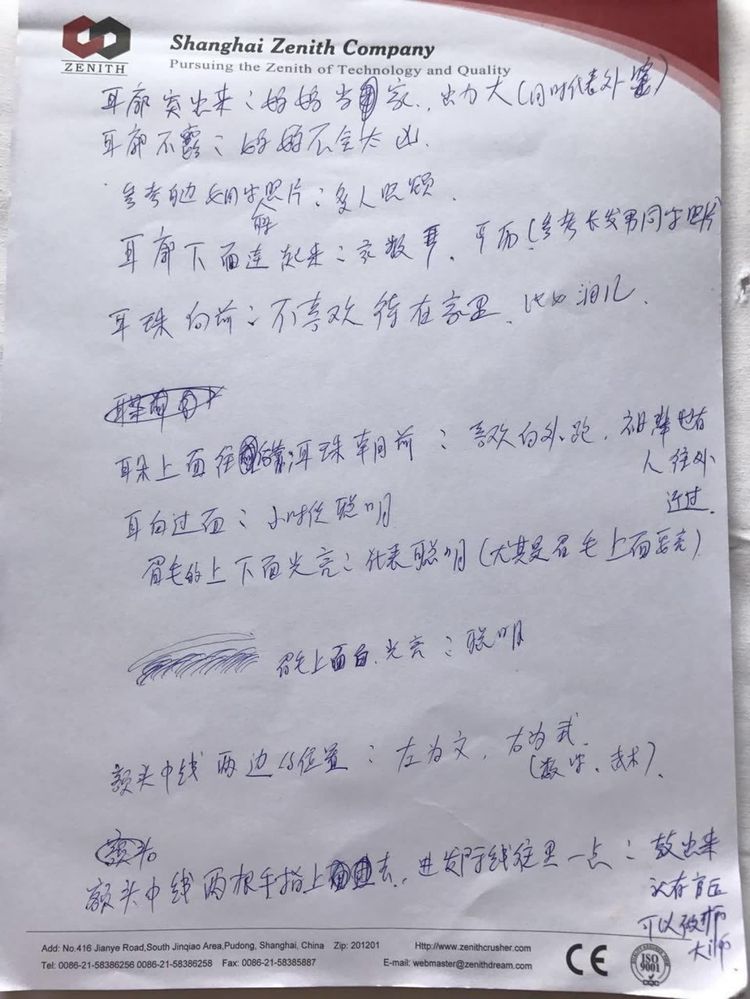 ZENITH
Shanghai Zenith Company
Pursuing the Zenith of Technology and Quality
耳廓突出来：妈妈当家，出力大（同时代表外
耳廓不露：妈妈不会太凶.
参考 照片：多人照顾.
耳廓下面连起来：
平（参考长发男同学照片
耳珠向前：不喜欢待在家里、比如
耳朵上面往 耳珠朝前：喜欢向外跑，祖辈也有
人往外
迁过.
耳白过面：小时候聪明
眉毛的上下面光亮：代表聪明（尤其是眉毛上面要亮）
眉毛上面白.光亮：聪明
额头中线两边的位置：左为文，右为武
（数学、武术）.
额头
额头中线两根手指上去，进发际线往里一点：鼓出来
可以
大师
Add: No.416 Jianye Road,South Jinqiao Area,Pudong, Shanghai, China Zip: 201201 Http://www.zenithcrusher.com
Tel: 0086-21-58386256 0086-21-58386258 Fax: 0086-21-58385887 E-mail: webmaster@zenithdream.com
CE
ISO
9001
CQC